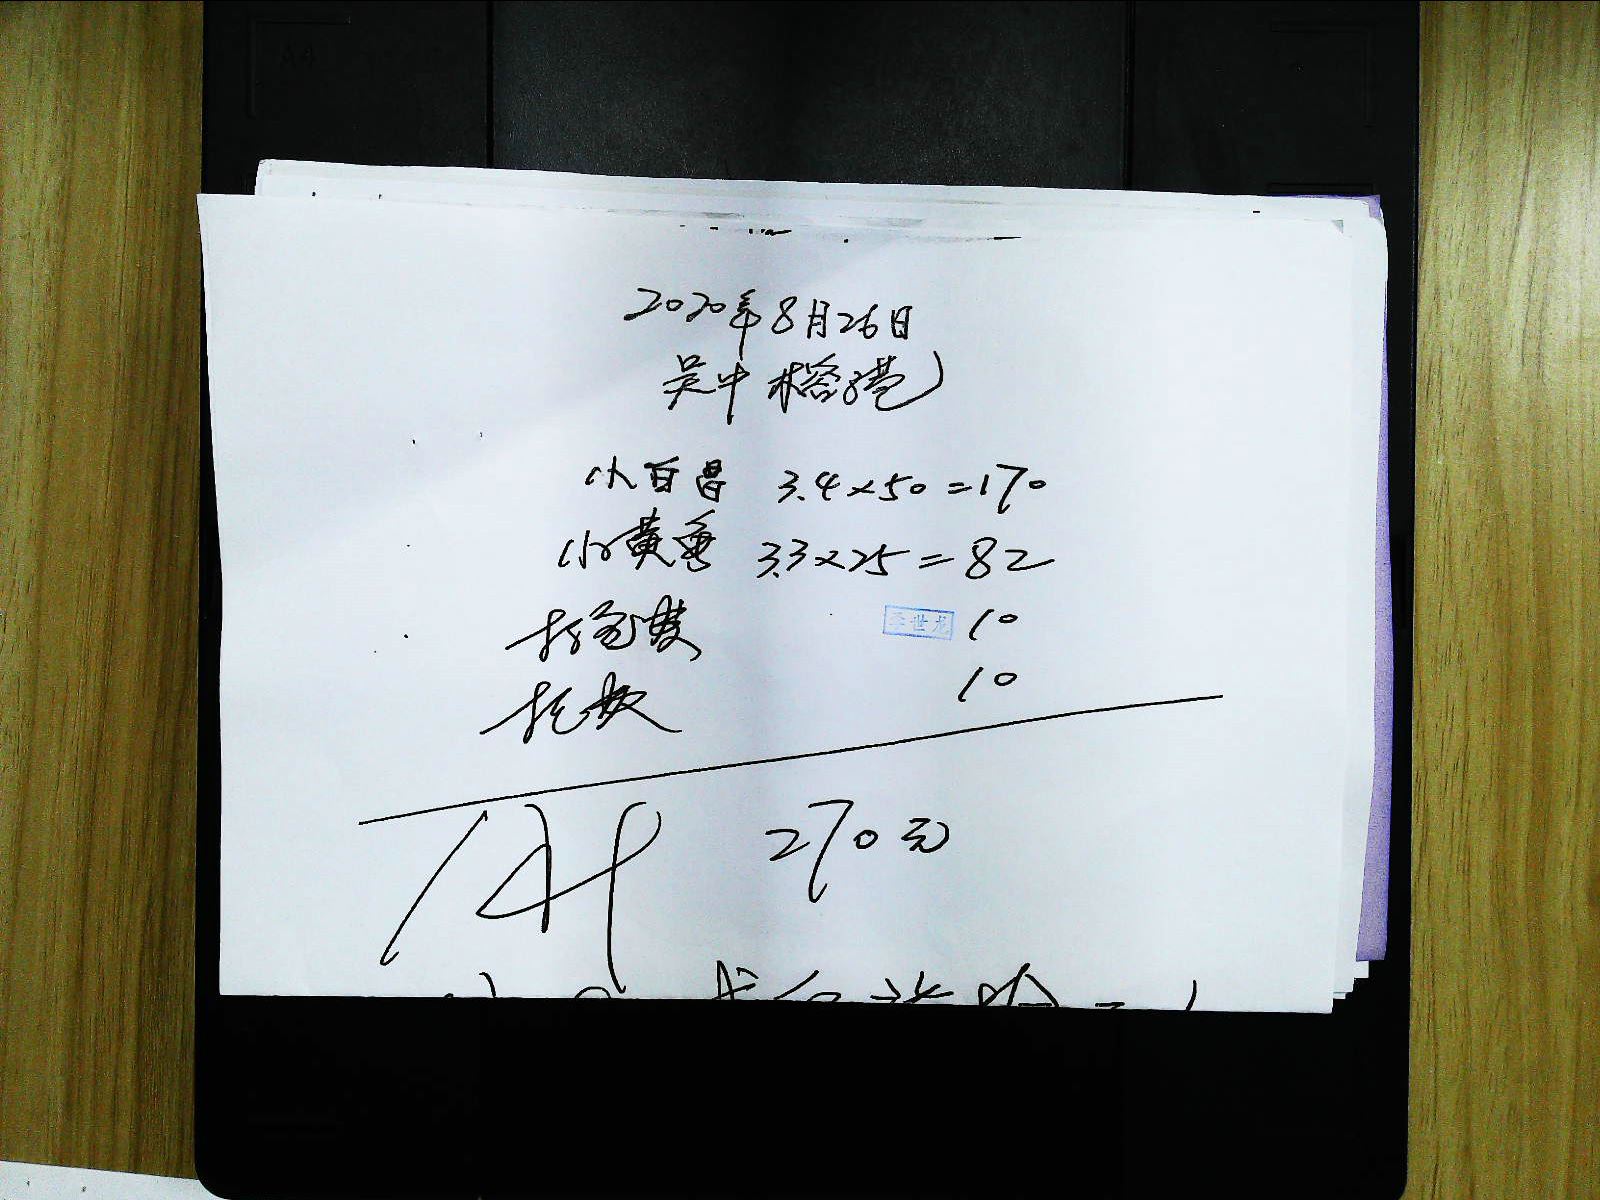 2020年8月26日
吴中 榕港
小白昌 3.4×50=170
小黄 3.3×25=82
打包费 李世龙 10
托 10
270元